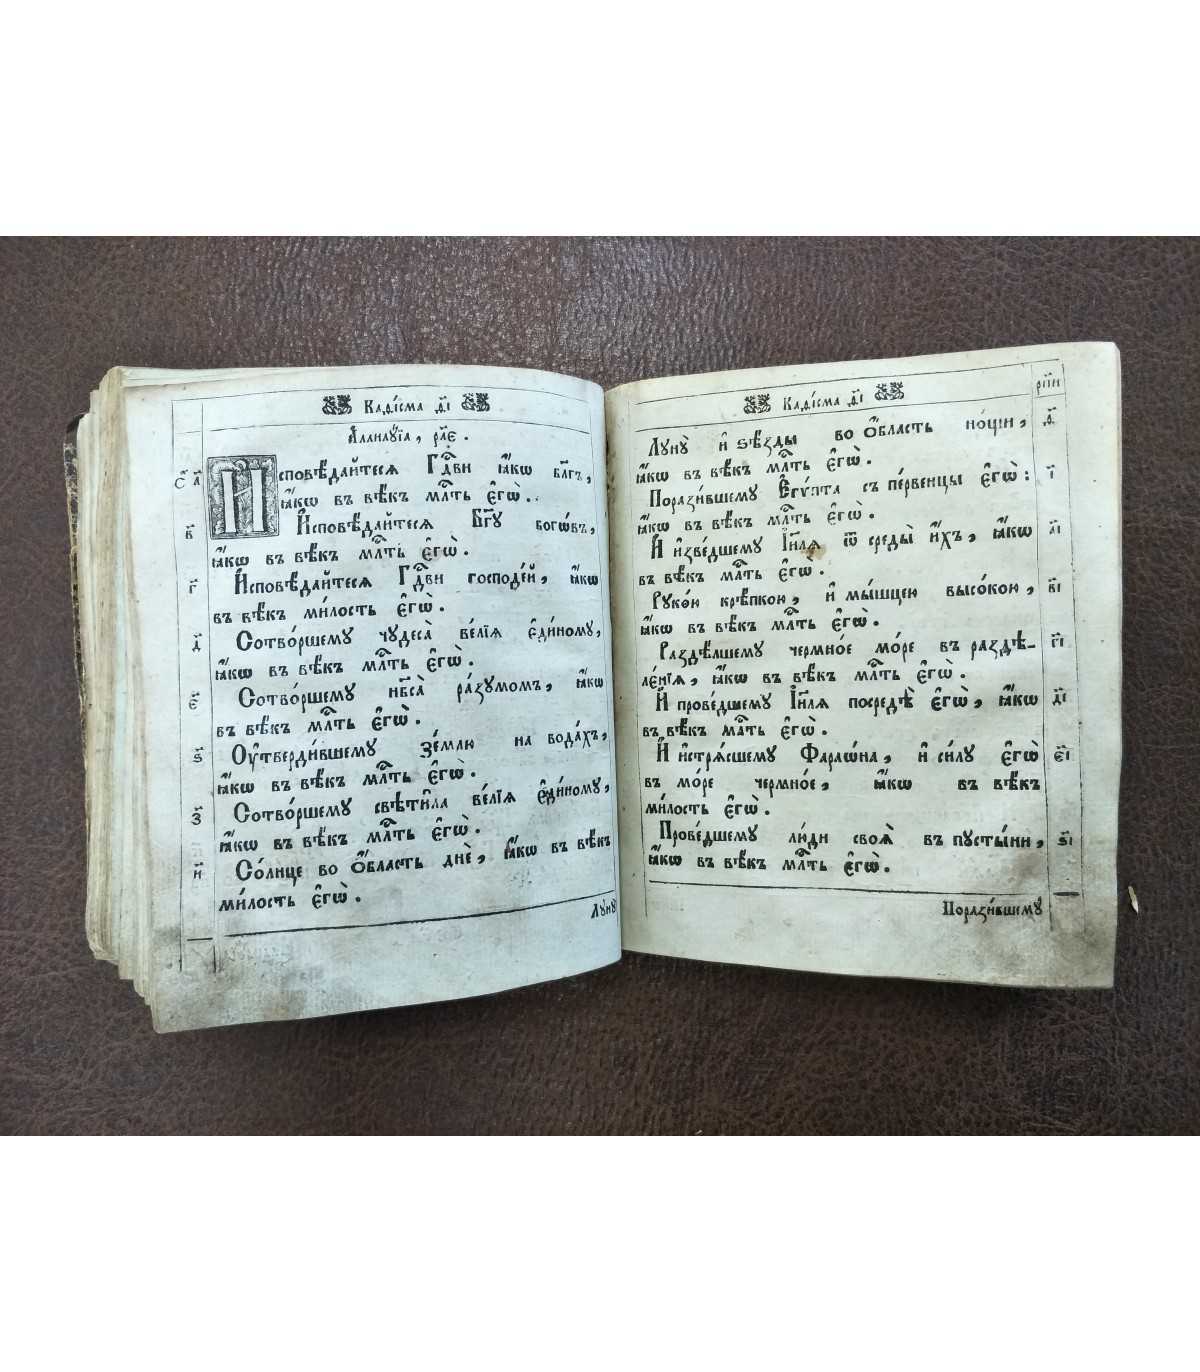 Каѳі́сма д҃і
А҆ллилꙋ́їа, рл҃е.
С҃ а҃ Исповѣ́дайтеся Гдⷭ҇ви ꙗ҆́кѡ бл҃гъ,
ꙗ҆́кѡ въ вѣ́къ млⷭ҇ть є҆гѡ̀.
в҃ И҆сповѣ́дайтеся Бг҃ꙋ богѡ́въ,
ꙗ҆́кѡ въ вѣ́къ млⷭ҇ть є҆гѡ̀.
г҃ И҆сповѣ́дайтеся Гдⷭ҇ви господе́й, ꙗ҆́кѡ
въ вѣ́къ ми́лость є҆гѡ̀.
д҃ Сотво́ршемꙋ чꙋдеса̀ ве́лїѧ є҆ди́номꙋ,
ꙗ҆́кѡ въ вѣ́къ млⷭ҇ть є҆гѡ̀.
є҃ Сотво́ршемꙋ нб҃са̀ ра́зꙋмомъ, ꙗ҆́кѡ
въ вѣ́къ млⷭ҇ть є҆гѡ̀.
ѕ҃ Оу҆тверди́вшемꙋ зе́млю на вода́хъ,
ꙗ҆́кѡ въ вѣ́къ млⷭ҇ть є҆гѡ̀.
з҃ Сотво́ршемꙋ свѣти̑ла ве́лїѧ є҆ди́номꙋ,
ꙗ҆́кѡ въ вѣ́къ млⷭ҇ть є҆гѡ̀.
и҃ Со́лнце во ѻ҆́бласть днѐ, ꙗ҆́кѡ въ вѣ́къ
ми́лость є҆гѡ̀.
Лꙋнꙋ̀
Каѳі́сма д҃і рп҃и
Лꙋнꙋ̀ и҆ ѕвѣ́зды во ѻ҆́бласть но́щи, ѳ҃
ꙗ҆́кѡ въ вѣ́къ млⷭ҇ть є҆гѡ̀.
Порази́вшемꙋ Є҆гѵ́пта съ пе́рвенцы є҆гѡ̀: і҃
ꙗ҆́кѡ въ вѣ́къ млⷭ҇ть є҆гѡ̀.
И҆ и҆зве́дшемꙋ І҆и҃лѧ ѿ среды̀ и҆́хъ, ꙗ҆́кѡ а҃і
въ вѣ́къ млⷭ҇ть є҆гѡ̀.
Рꙋко́ю крѣ́пкою, и҆ мы́шцею высо́кою, в҃і
ꙗ҆́кѡ въ вѣ́къ млⷭ҇ть є҆гѡ̀.
Раздѣ́лшемꙋ чермно́е мо́ре въ раздѣ- г҃і
ле́нїѧ, ꙗ҆́кѡ въ вѣ́къ млⷭ҇ть є҆гѡ̀.
И҆ прове́дшемꙋ І҆и҃лѧ посредѣ̀ є҆гѡ̀, ꙗ҆́кѡ д҃і
въ вѣ́къ млⷭ҇ть є҆гѡ̀.
И҆ и҆стрѧ́сшемꙋ Фараѡ́на, и҆ си́лꙋ є҆гѡ̀ є҃і
въ мо́ре чермно́е, ꙗ҆́кѡ въ вѣ́къ
ми́лость є҆гѡ̀.
Прове́дшемꙋ лю́ди своѧ̑ въ пꙋсты́ни, ѕ҃і
ꙗ҆́кѡ въ вѣ́къ млⷭ҇ть є҆гѡ̀.
Порази́вшемꙋ